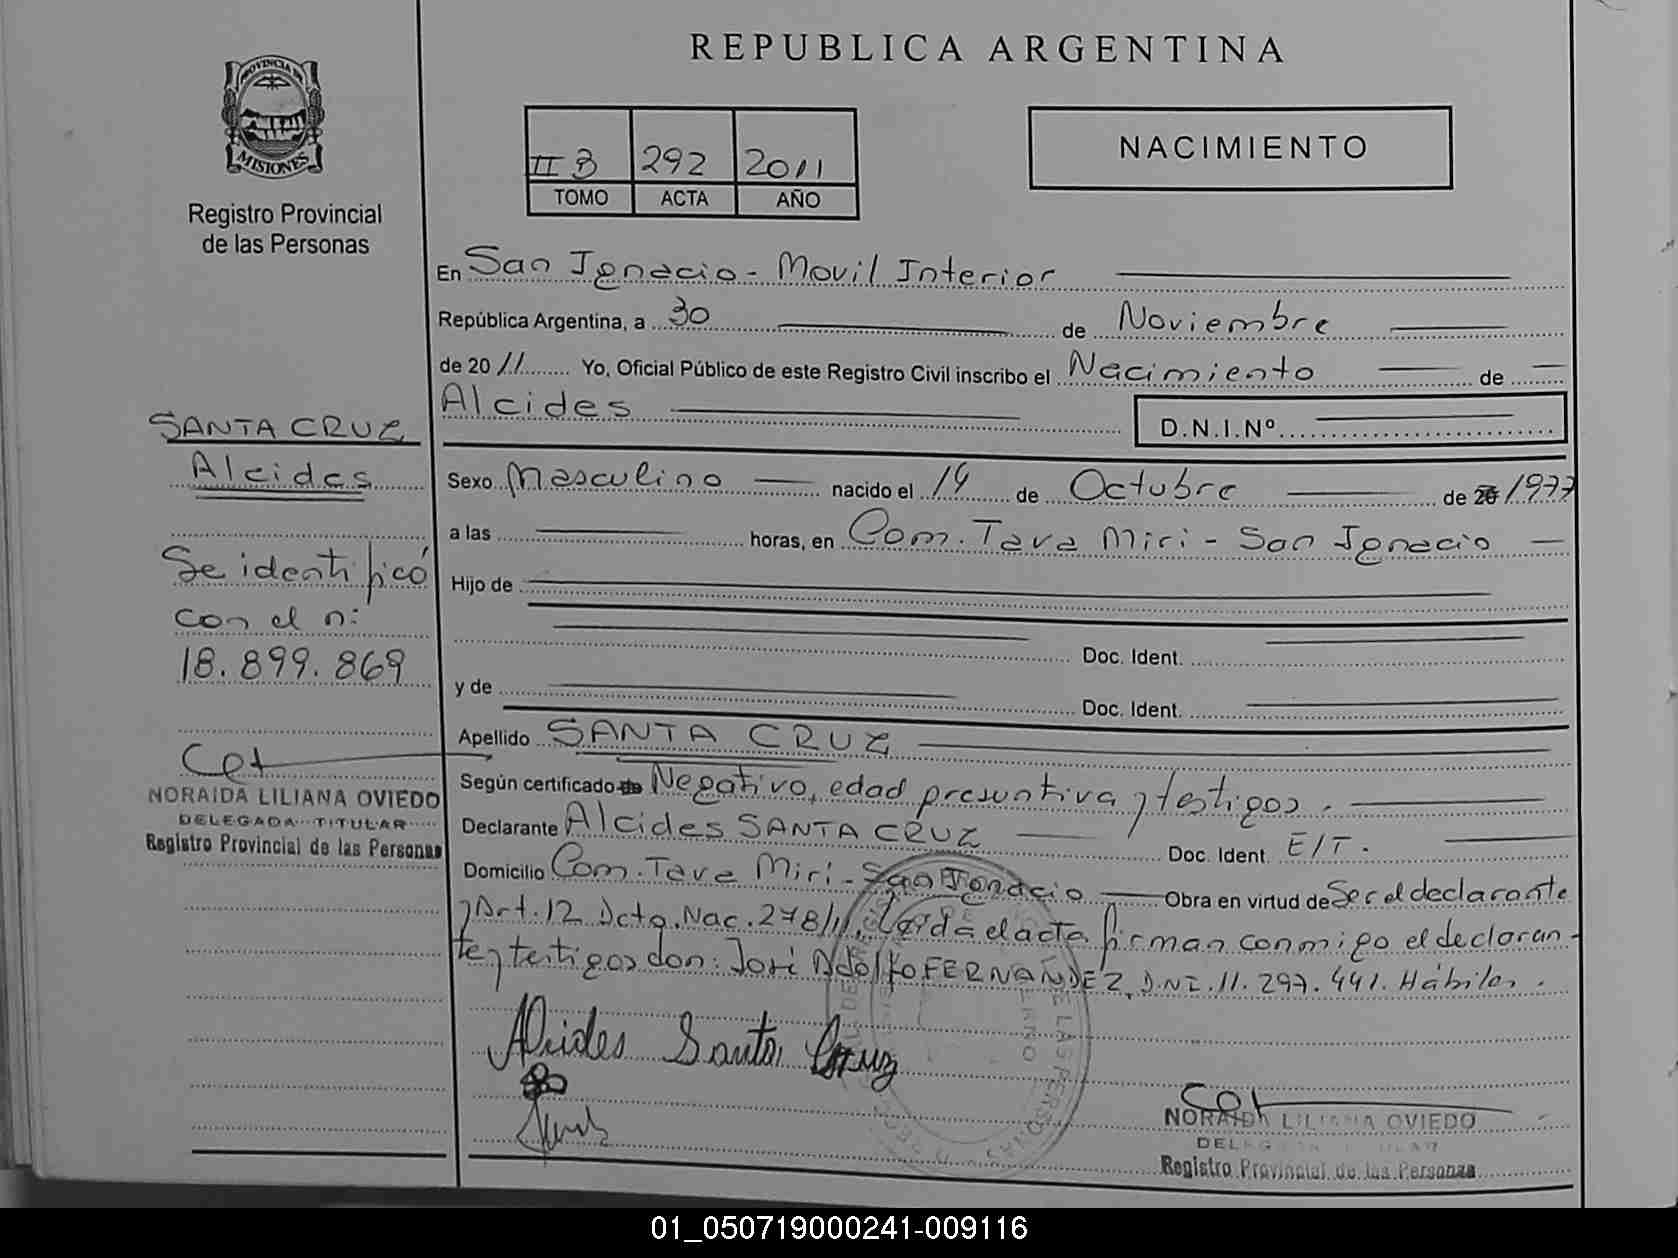 REPUBLICA ARGENTINA
PROVINCIA DE
MISIONES
Registro Provincial
de las Personas
II B 292 2011
TOMO ACTA AÑO
NACIMIENTO
En San Ignacio - Movil Interior
República Argentina, a 30 de Noviembre
de 2011 Yo, Oficial Público de este Registro Civil inscribo el Nacimiento de
Alcides
D.N.I.Nº
Sexo Masculino nacido el 14 de Octubre de 20 1977
a las horas, en Com. Tava Miri - San Ignacio
Hijo de
Doc. Ident.
y de
Doc. Ident.
Apellido SANTA CRUZ
Según certificado de Negativo, edad presuntiva y testigos.
Declarante Alcides SANTA CRUZ Doc. Ident. E/T.
Domicilio Com. Tava Miri - San Ignacio Obra en virtud de Ser el declarante
y Art. 12 Dcto. Nac. 278/11. Leída el acta firman conmigo el declaran-
te y testigos don: José Adolfo FERNANDEZ, D.N.I. 11.297.441. Hábiles.
Alcides Santa Cruz
NORAIDA LILIANA OVIEDO
DELEGADA TITULAR
Registro Provincial de las Personas
SANTA CRUZ
Alcides
Se identificó
con el n:
18.899.869
NORAIDA LILIANA OVIEDO
DELEGADA TITULAR
Registro Provincial de las Personas
01_050719000241-009116